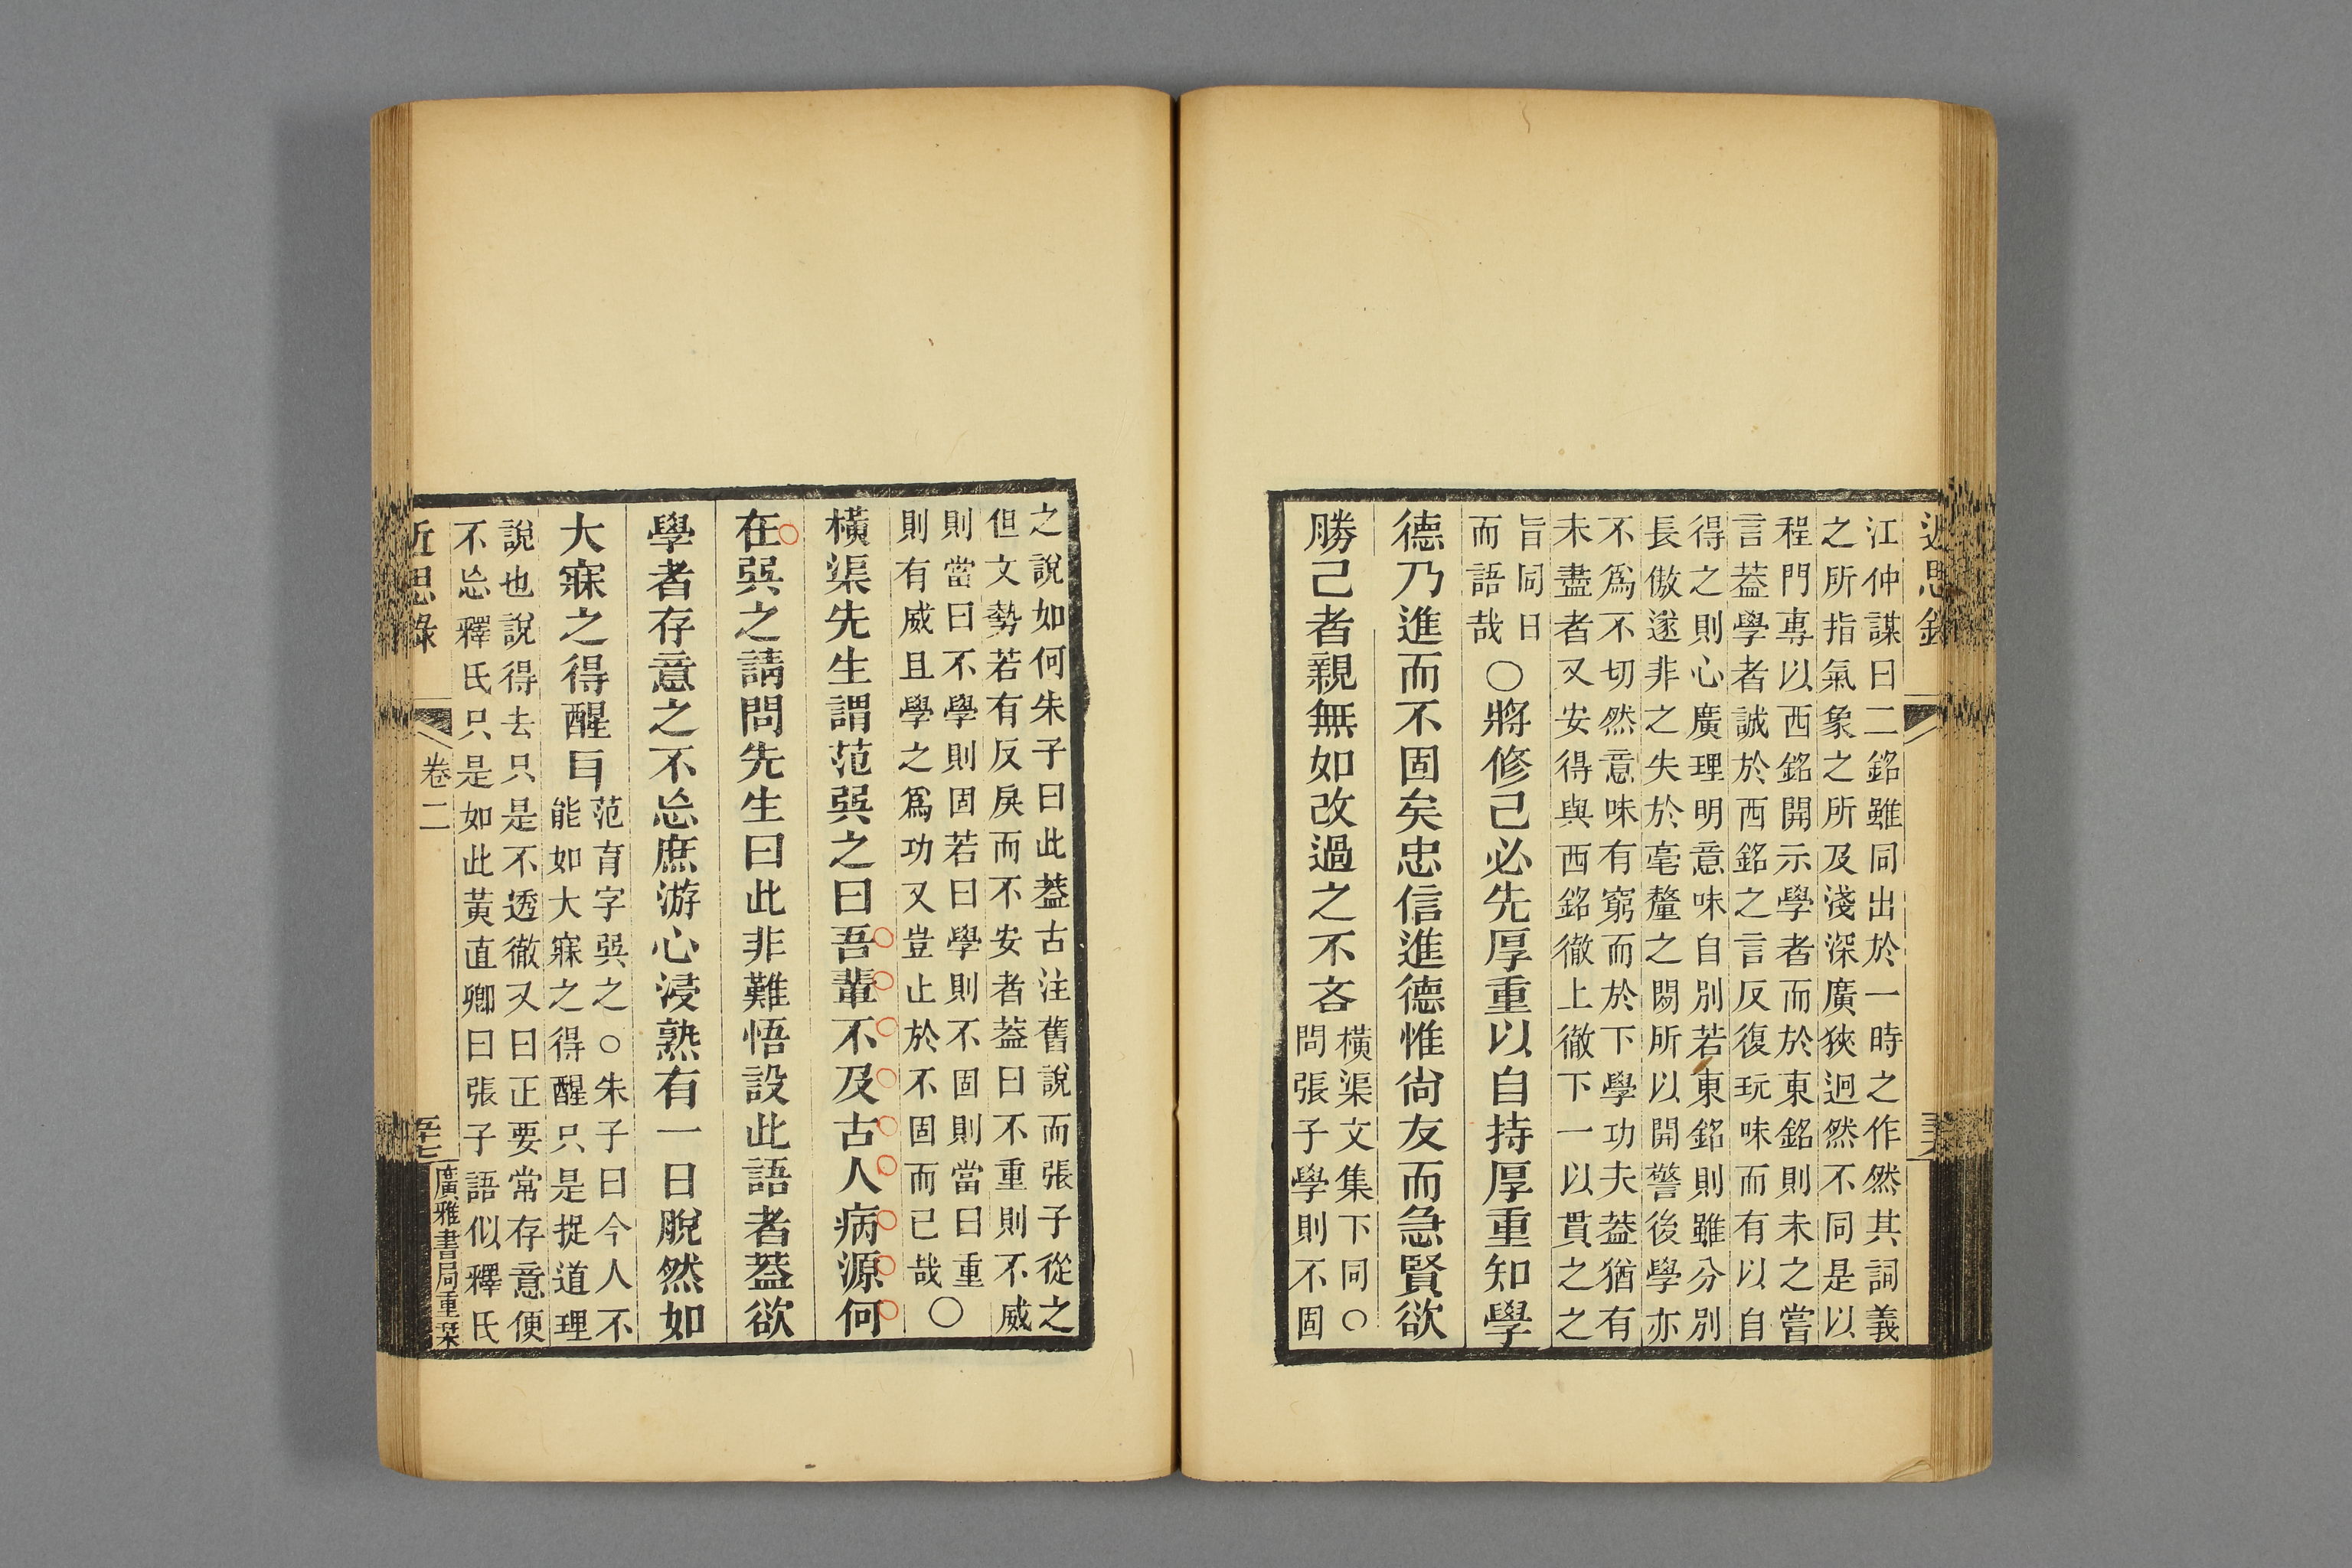 近思錄
江仲謀曰二銘雖同出於一時之作然其詞義
之所指氣象之所及淺深廣狹迥然不同是以
程門專以西銘開示學者而於東銘則未之嘗
言葢學者誠於西銘之言反復玩味而有以自
得之則心廣理明意味自別若東銘則雖分別
長傲遂非之失於毫釐之閒所以開警後學亦
不爲不切然意味有窮而於下學功夫葢猶有
未盡者又安得與西銘徹上徹下一以貫之之
旨同日
而語哉
○將修己必先厚重以自持厚重知學
德乃進而不固矣忠信進德惟尙友而急賢欲
勝己者親無如改過之不吝
橫渠文集下同○
問張子學則不固
之說如何朱子曰此葢古注舊說而張子從之
但文勢若有反戾而不安者葢曰不重則不威
則當曰不學則固若曰學則不固則當曰重
則有威且學之爲功又豈止於不固而已哉
○
橫渠先生謂范巽之曰吾輩不及古人病源何
在巽之請問先生曰此非難悟設此語者葢欲
學者存意之不忘庶游心浸熟有一日脫然如
大寐之得醒耳
范育字巽之○朱子曰今人不
能如大寐之得醒只是捉道理
說也說得去只是不透徹又曰正要常存意便
不忘釋氏只是如此黃直卿曰張子語似釋氏
近思錄
卷二
廣雅書局重栞